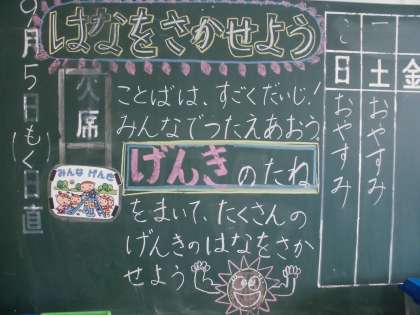 はなをさかせよう
9月5日(もく)
日直
欠席
みんな げんき
ことばは、すごくだいじ!
みんなでつたえあおう
げんきのたね
をまいて、たくさんの
げんきのはなをさか
せよう
日 土 金
おやすみ
おやすみ